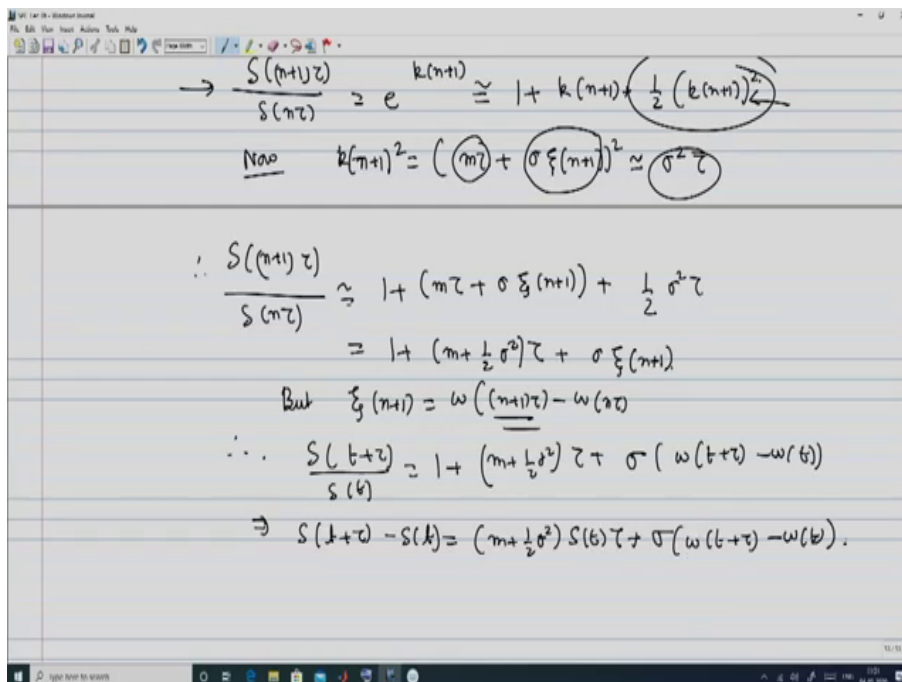 File Edit View Insert Actions Tools Help
Page Width
→ S((n+1)τ) / S(nτ) = e^{k(n+1)} ≅ 1 + k(n+1) + 1/2 (k(n+1))^2
Now k(n+1)^2 = (mτ + σ ξ(n+1))^2 ≅ σ^2 τ
∴ S((n+1)τ) / S(nτ) ≅ 1 + (mτ + σ ξ(n+1)) + 1/2 σ^2 τ
= 1 + (m + 1/2 σ^2) τ + σ ξ(n+1).
But ξ(n+1) = w((n+1)τ) - w(nτ)
∴ S(t+τ) / S(t) = 1 + (m + 1/2 σ^2) τ + σ (w(t+τ) - w(t))
⇒ S(t+τ) - S(t) = (m + 1/2 σ^2) S(t) τ + σ(w(t+τ) - w(t)).
Type here to search